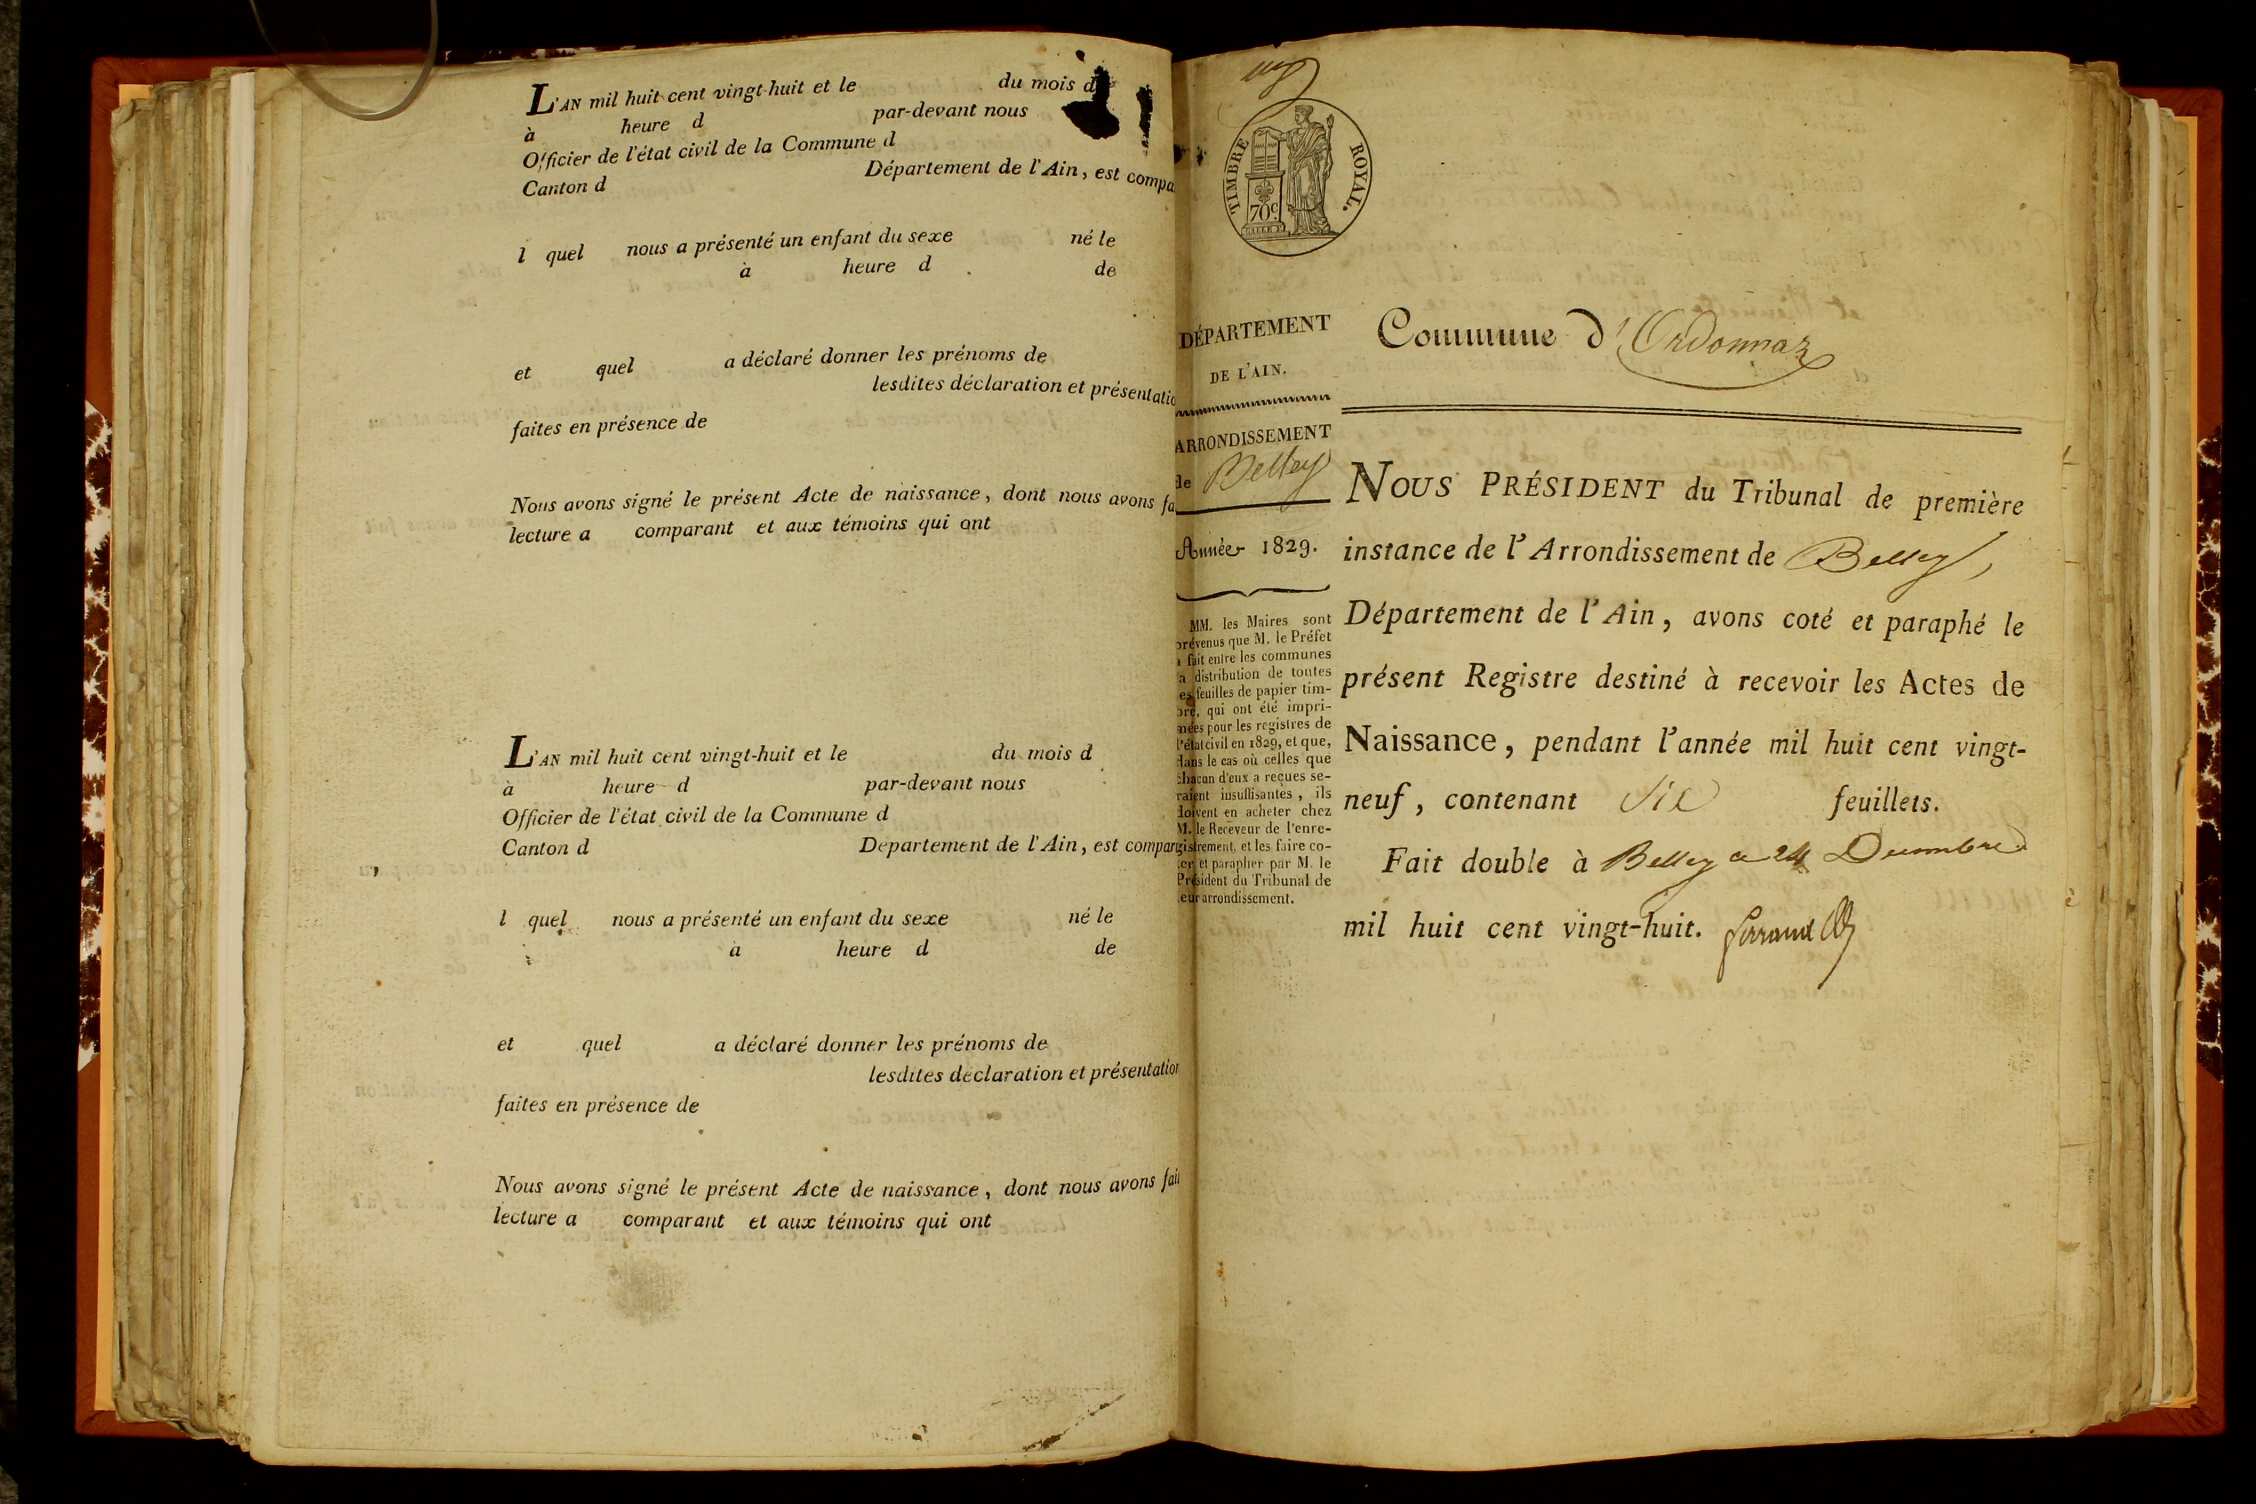 L'AN mil huit cent vingt-huit et le du mois d
à heure d par-devant nous
Officier de l'état civil de la Commune d
Canton d Département de l'Ain, est compa
l quel nous a présenté un enfant du sexe né le
à heure d de
et quel a déclaré donner les prénoms de
lesdites déclaration et présentatio
faites en présence de
Nous avons signé le présent Acte de naissance, dont nous avons fa
lecture a comparant et aux témoins qui ont
L'AN mil huit cent vingt-huit et le du mois d
à heure d par-devant nous
Officier de l'état civil de la Commune d
Canton d Département de l'Ain, est compar
l quel nous a présenté un enfant du sexe né le
à heure d de
et quel a déclaré donner les prénoms de
lesdites déclaration et présentation
faites en présence de
Nous avons signé le présent Acte de naissance, dont nous avons fait
lecture a comparant et aux témoins qui ont
TIMBRE ROYAL.
70c
DÉPARTEMENT
DE L'AIN.
ARRONDISSEMENT
de Belley
Année 1829.
MM. les Maires sont
prévenus que M. le Préfet
a fait entre les communes
la distribution de toutes
les feuilles de papier tim-
bré, qui ont été impri-
mées pour les registres de
l'état civil en 1829, et que,
dans le cas où celles que
chacun d'eux a reçues se-
raient insuffisantes, ils
doivent en acheter chez
M. le Receveur de l'enre-
gistrement, et les faire co-
ter et parapher par M. le
Président du Tribunal de
leur arrondissement.
Commune d'Ordonnaz
NOUS PRÉSIDENT du Tribunal de première
instance de l'Arrondissement de Belley,
Département de l'Ain, avons coté et paraphé le
présent Registre destiné à recevoir les Actes de
Naissance, pendant l'année mil huit cent vingt-
neuf, contenant Six feuillets.
Fait double à Belley ce 24 Decembre
mil huit cent vingt-huit.